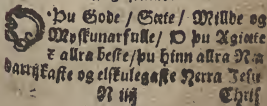 O Þu Gode / Sæte / Millde og
Myskunarfulle / O þu Agiæte
z allra beste / þu hinn allra Naa
darrijkaste og elskulegaste Herra Jesu
N iiij Christ